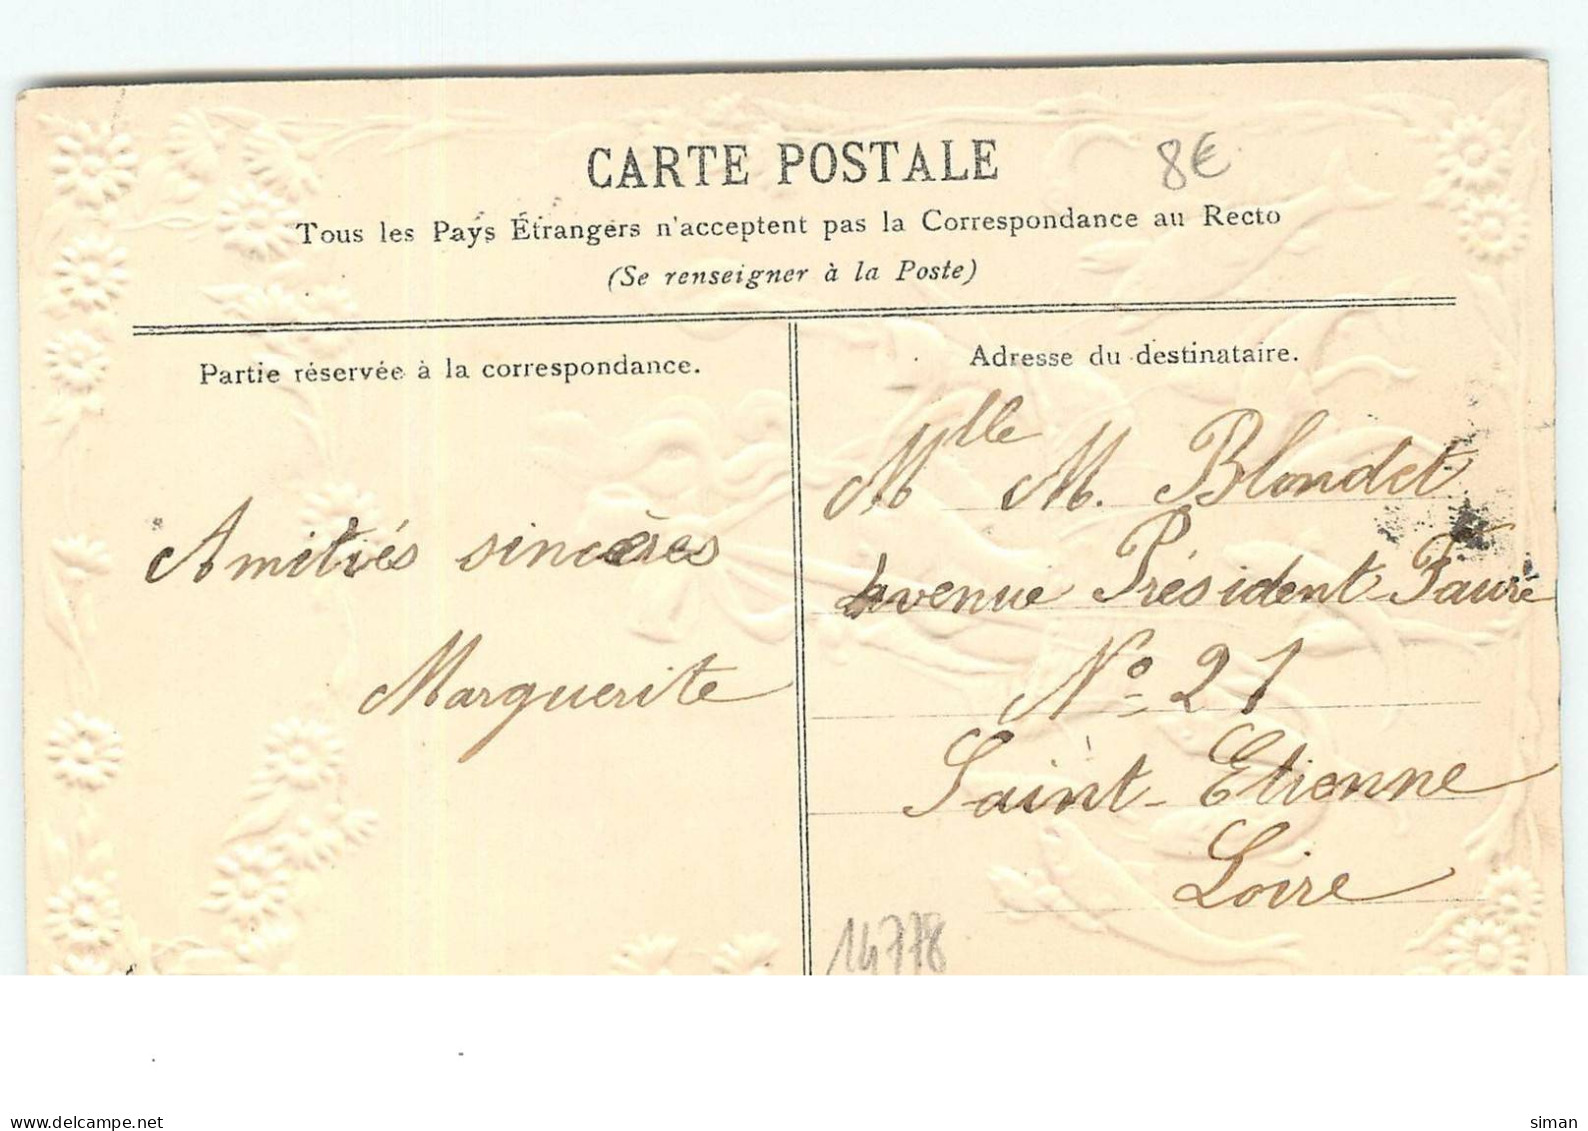 CARTE POSTALE
8€
Tous les Pays Étrangers n'acceptent pas la Correspondance au Recto
(Se renseigner à la Poste)
Partie réservée à la correspondance.
Amitiés sincères
Marguerite
Adresse du destinataire.
Mlle M. Blondet
avenue Président-Faure
No 21
Saint-Etienne
Loire
14778
www.delcampe.net
siman